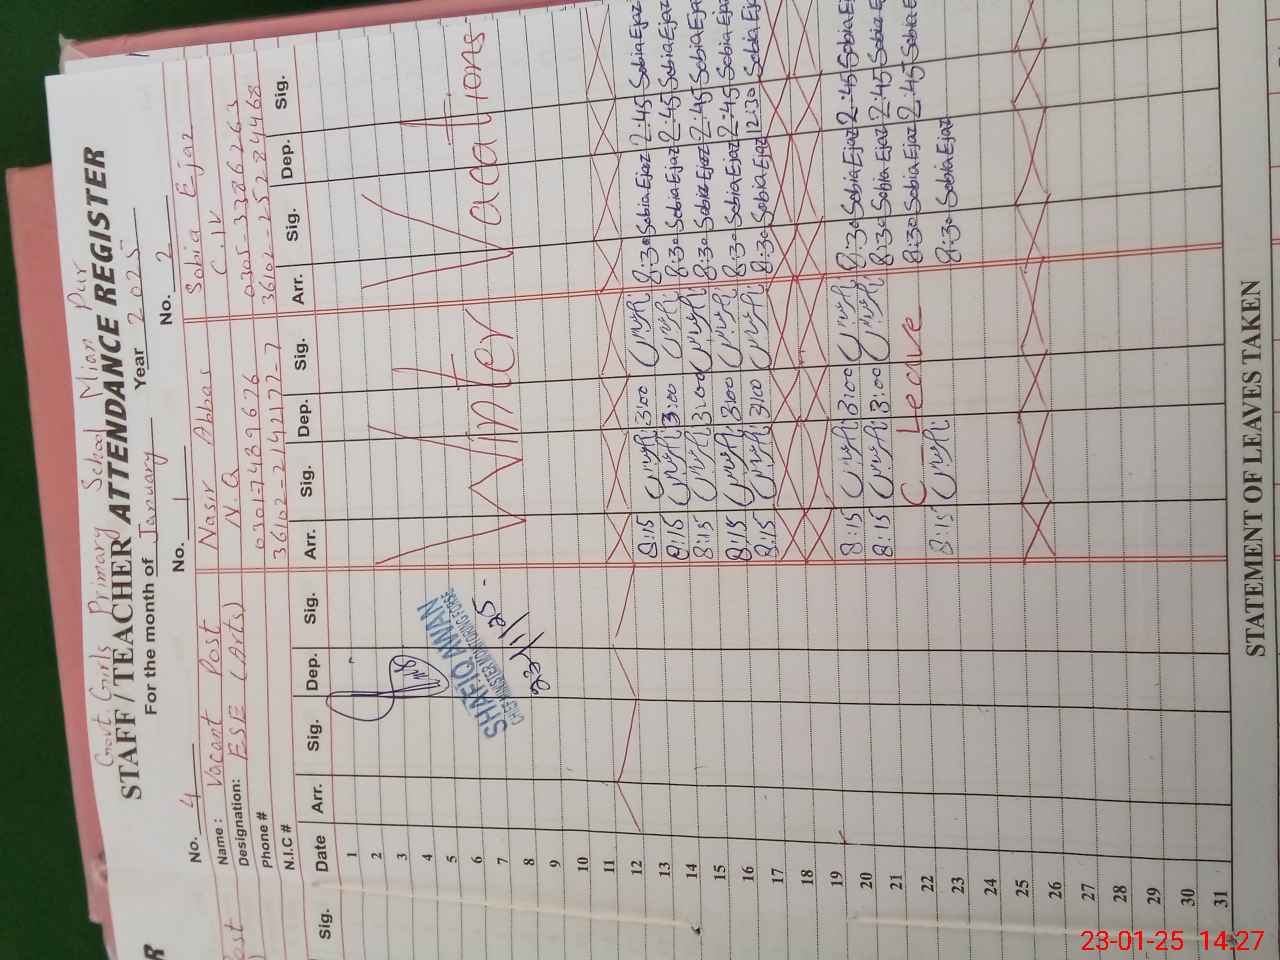 Govt. Girls Primary School Mian Pur
STAFF / TEACHER ATTENDANCE REGISTER
For the month of January Year 2025
No. 4 No. 1 No. 2
Name: Vacant Post Nasir Abbas Sobia Ejaz
Designation: ESE (Arts) N.Q C.IV
Phone # 0301-7439676 0305-3386263
N.I.C # 36102-2142177-7
Sig. Date Arr. Sig. Dep. Sig. Arr. Sig. Dep. Sig. Arr. Sig. Dep. Sig.
1
2
3
4
5
6
7
8
9
Winter Vacations
SHAFIQ AWAN
CHIEF MINISTER MONITORING FORCE
23/1/25
10
11
12 8:15 3:00 8:30 Sobia Ejaz 2:45 Sobia Ejaz
13 8:15 3:00 8:30 Sobia Ejaz 2:45 Sobia Ejaz
14 8:15 3:00 8:30 Sobia Ejaz 2:45 Sobia Ejaz
15 8:15 3:00 8:30 Sobia Ejaz 2:45 Sobia Ejaz
16 8:15 3:00 8:30 Sobia Ejaz 12:30 Sobia Ejaz
17
18
19 8:15 3:00 8:30 Sobia Ejaz 2:45 Sobia Ejaz
20 8:15 3:00 8:30 Sobia Ejaz 2:45 Sobia Ejaz
21 C_ Leave 8:30 Sobia Ejaz 2:45 Sobia Ejaz
22 8:15 8:30 Sobia Ejaz
23
24
25
26
27
28
29
30
31
STATEMENT OF LEAVES TAKEN
23-01-25 14:27